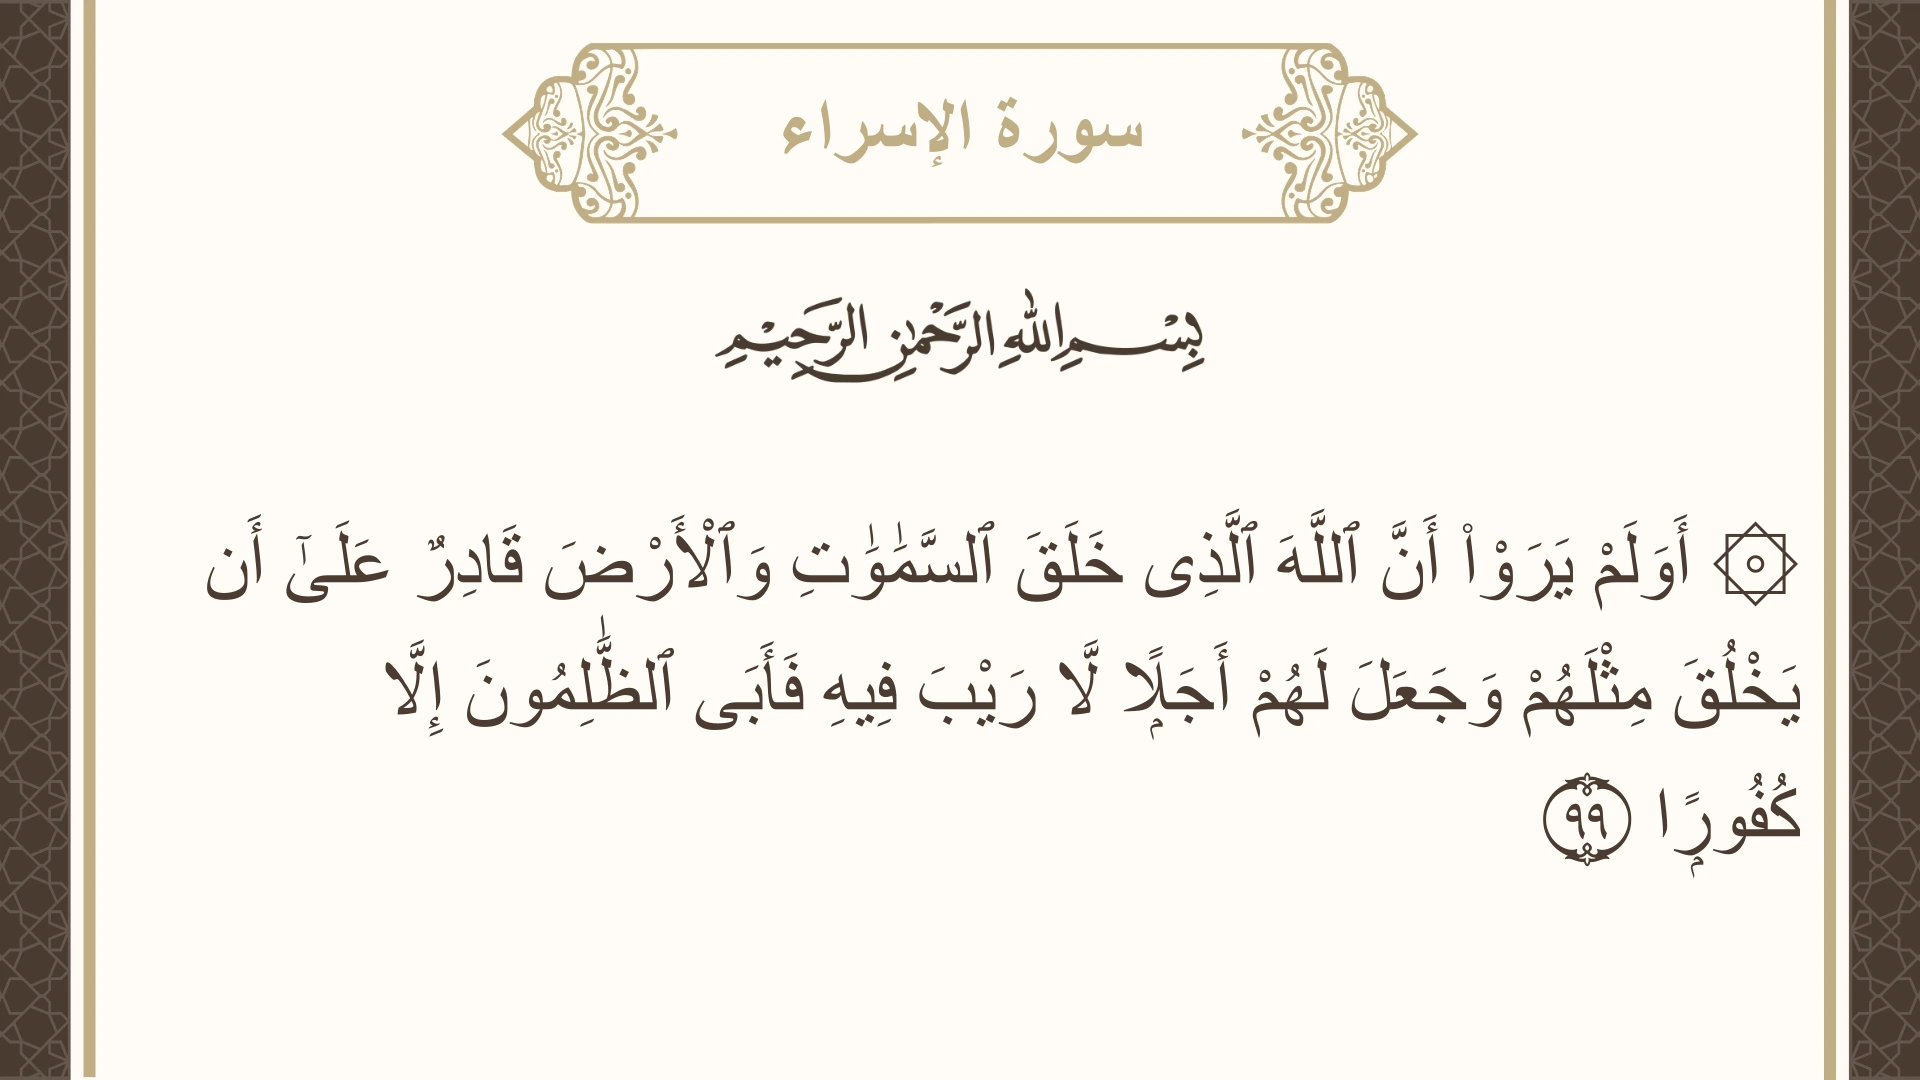 سورة الإسراء
بِسْمِ اللهِ الرَّحْمٰنِ الرَّحِيْمِ
۞ أَوَلَمْ يَرَوْا۟ أَنَّ ٱللَّهَ ٱلَّذِى خَلَقَ ٱلسَّمَٰوَٰتِ وَٱلْأَرْضَ قَادِرٌ عَلَىٰٓ أَن
يَخْلُقَ مِثْلَهُمْ وَجَعَلَ لَهُمْ أَجَلًۭا لَّا رَيْبَ فِيهِ فَأَبَى ٱلظَّٰلِمُونَ إِلَّا
كُفُورًۭا ٩٩